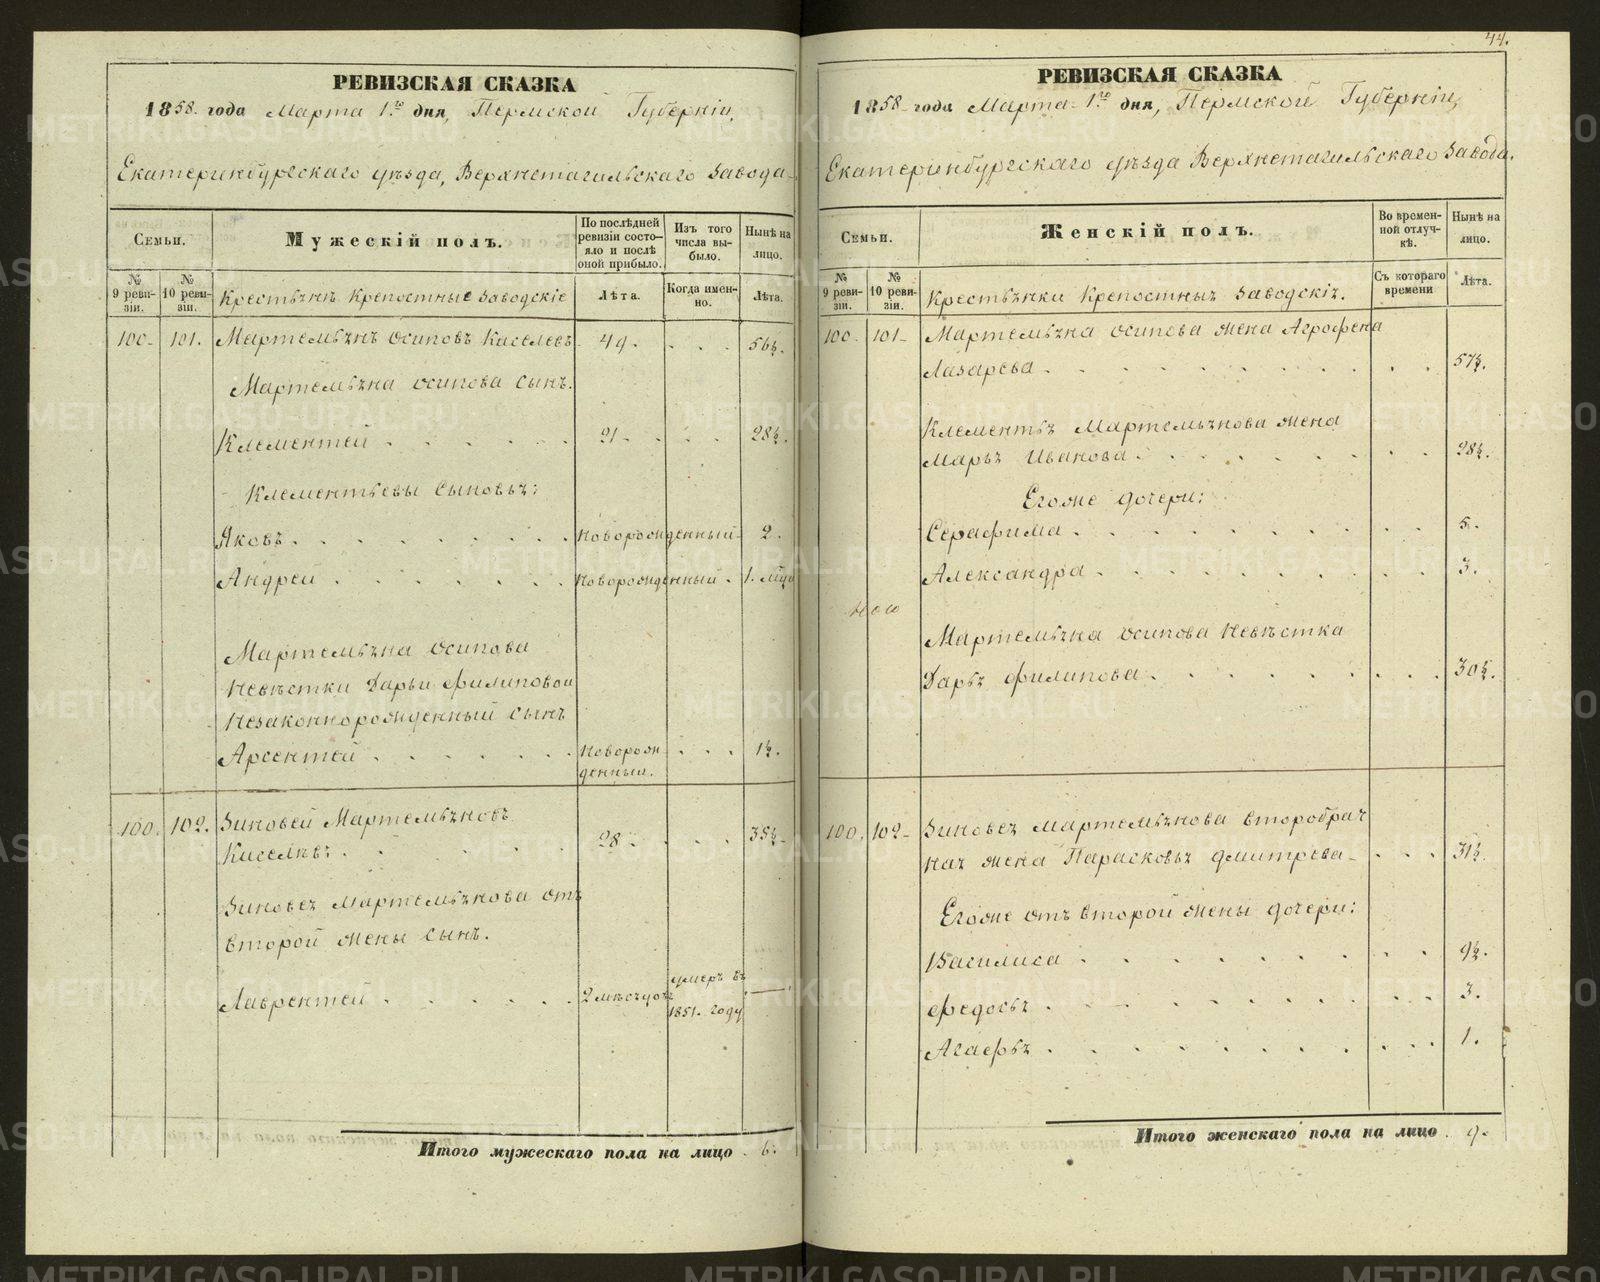 РЕВИЗСКАЯ СКАЗКА
1858 года Марта 1го дня, Пермской Губерніи,
Екатеринбургскаго уѣзда, Верхнетагильскаго Завода
Семьи.
№ 9 ревизіи.
№ 10 ревизіи.
Мужескій полъ.
Крестьянѣ Крепостные Заводскіе
По послѣдней ревизіи состояло и послѣ оной прибыло.
Лѣта.
Изъ того числа выбыло.
Когда именно.
Нынѣ на лицо.
Лѣта.
100. 101. Мартемьянъ Осиповъ Киселевъ 49. 56½.
Мартемьяна Осипова сынъ.
Клементей 21. 28½.
Клементьевы сыновья:
Яковъ новорожденный 2.
Андрей новорожденный. 1. мѣсц
Мартемьяна Осипова
невѣстки Дарьи Филиповой
незаконнорожденный сынъ
Арсентей новорож 1½.
денный.
100. 102. Зиновей Мартемьяновъ
Киселевъ. 28. 35½.
Зиновея Мартемьянова отъ
второй жены сынъ.
Лаврентей 2 мѣсяцовъ умеръ въ
1851. году
Итого мужескаго пола на лицо 6.
44.
РЕВИЗСКАЯ СКАЗКА
1858 года Марта 1го дня, Пермской Губерніи,
Екатеринбургскаго уѣзда Верхнетагильскаго Завода.
Семьи.
№ 9 ревизіи.
№ 10 ревизіи.
Женскій полъ.
Крестьянки Крепостныя Заводскія.
Во временной отлучкѣ.
Съ котораго времени
Нынѣ на лицо.
Лѣта.
100. 101. Мартемьяна Осипова жена Агрофена
Лазарева 57½.
Клементья Мартемьянова жена
Марья Иванова 28½.
Егоже дочери:
Серафима 5.
Александра 3.
Мартемьяна Осипова невѣстка
Дарья Филипова 30½.
100. 102. Зиновея Мартемьянова второбрач
ная жена Парасковья Дмитрева 31½.
Егоже отъ второй жены дочери:
Василиса 9½.
Федосья 3.
Агафья 1.
Итого женскаго пола на лицо 9.
METRIKI.GASO-URAL.RU